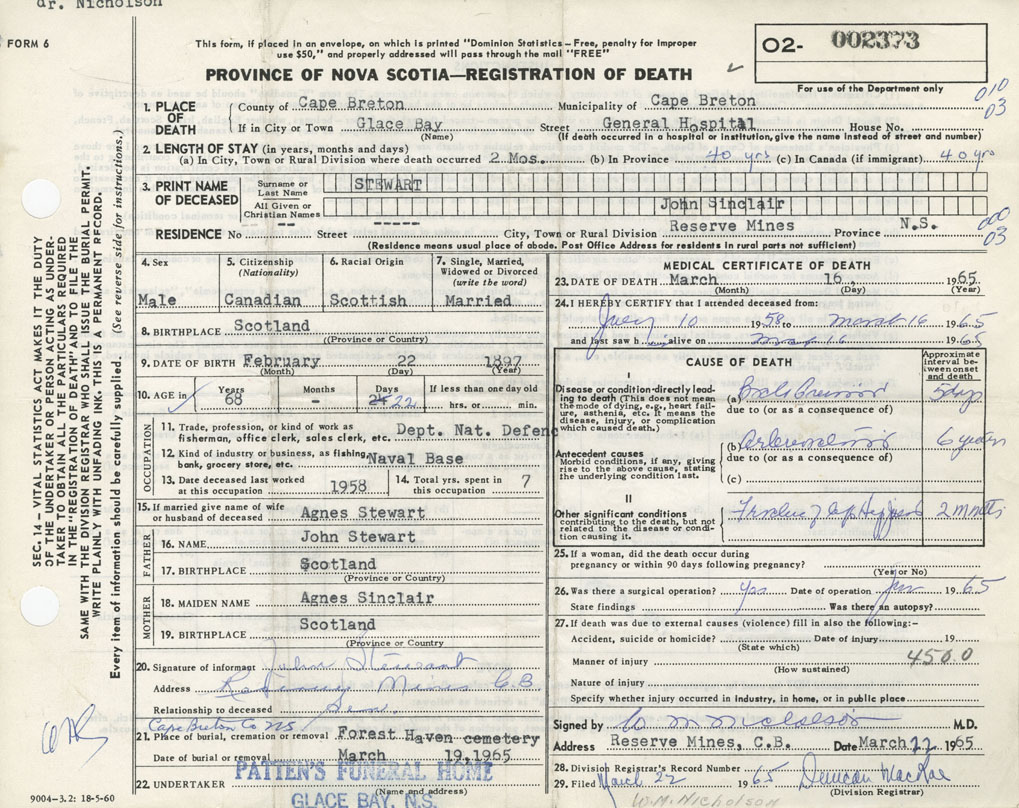 dr. Nicholson
FORM 6
This form, if placed in an envelope, on which is printed "Dominion Statistics—Free, penalty for improper
use $50," and properly addressed will pass through the mail "FREE"
PROVINCE OF NOVA SCOTIA—REGISTRATION OF DEATH
O2- 002373
For use of the Department only
010
03
1. PLACE OF DEATH
County of Cape Breton Municipality of Cape Breton
If in City or Town Glace Bay Street General Hospital House No.
(Name) (If death occurred in a hospital or institution, give the name instead of street and number)
2. LENGTH OF STAY (in years, months and days)
(a) In City, Town or Rural Division where death occurred 2 Mos. (b) In Province 40 yrs (c) In Canada (if immigrant) 40 yrs
3. PRINT NAME OF DECEASED
Surname or Last Name STEWART
All Given or Christian Names John Sinclair
RESIDENCE No -- Street ---- City, Town or Rural Division Reserve Mines Province N.S.
000
03
(Residence means usual place of abode. Post Office Address for residents in rural parts not sufficient)
4. Sex Male
5. Citizenship (Nationality) Canadian
6. Racial Origin Scottish
7. Single, Married, Widowed or Divorced (write the word) Married
8. BIRTHPLACE Scotland
(Province or Country)
9. DATE OF BIRTH February 22 1897
(Month) (Day) (Year)
10. AGE in Years 68 Months - Days 22 If less than one day old hrs. or min.
OCCUPATION
11. Trade, profession, or kind of work as fisherman, office clerk, sales clerk, etc. Dept. Nat. Defenc
12. Kind of industry or business, as fishing, bank, grocery store, etc. Naval Base
13. Date deceased last worked at this occupation 1958
14. Total yrs. spent in this occupation 7
15. If married give name of wife or husband of deceased Agnes Stewart
FATHER
16. NAME John Stewart
17. BIRTHPLACE Scotland
(Province or Country)
MOTHER
18. MAIDEN NAME Agnes Sinclair
19. BIRTHPLACE Scotland
(Province or Country)
20. Signature of informant John Stewart
Address Reserve Mines C.B.
Relationship to deceased Son.
Cape Breton Co NS
21. Place of burial, cremation or removal Forest Haven cemetery
Date of burial or removal March 19,1965
22. UNDERTAKER PATTEN'S FUNERAL HOME
(Name and address)
GLACE BAY, N.S.
9004-3.2: 18-5-60
MEDICAL CERTIFICATE OF DEATH
23. DATE OF DEATH March 16 1965
(Month) (Day) (Year)
24. I HEREBY CERTIFY that I attended deceased from:
July 10 1958 to March 16 1965
and last saw h im alive on Mar 16 1965
CAUSE OF DEATH
Approximate interval between onset and death
I
Disease or condition directly leading to death (This does not mean the mode of dying, e.g., heart failure, asthenia, etc. It means the disease, injury, or complication which caused death.)
(a) 5 days
due to (or as a consequence of)
Antecedent causes
Morbid conditions, if any, giving rise to the above cause, stating the underlying condition last.
(b) 6 years
due to (or as a consequence of)
(c)
II
Other significant conditions
contributing to the death, but not related to the disease or condition causing it.
2 months
25. If a woman, did the death occur during
pregnancy or within 90 days following pregnancy?
(Yes or No)
26. Was there a surgical operation? Yes Date of operation Jan 1965
State findings Was there an autopsy?
27. If death was due to external causes (violence) fill in also the following:-
Accident, suicide or homicide? Date of injury 19
(State which)
Manner of injury 450.0
(How sustained)
Nature of injury
Specify whether injury occurred in industry, in home, or in public place
Signed by W M Nicholson M.D.
Address Reserve Mines, C.B. Date March 22 1965
28. Division Registrar's Record Number
29. Filed March 22 1965 Duncan MacRae
(Division Registrar)
W.M. Nicholson
SEC. 14 - VITAL STATISTICS ACT MAKES IT THE DUTY
OF THE UNDERTAKER OR PERSON ACTING AS UNDER-
TAKER TO OBTAIN ALL THE PARTICULARS REQUIRED
IN THE "REGISTRATION OF DEATH" AND TO FILE THE
SAME WITH THE DIVISION REGISTRAR WHO SHALL ISSUE THE BURIAL PERMIT.
WRITE PLAINLY WITH UNFADING INK. THIS IS A PERMANENT RECORD.
Every item of information should be carefully supplied. (See reverse side for instructions.)